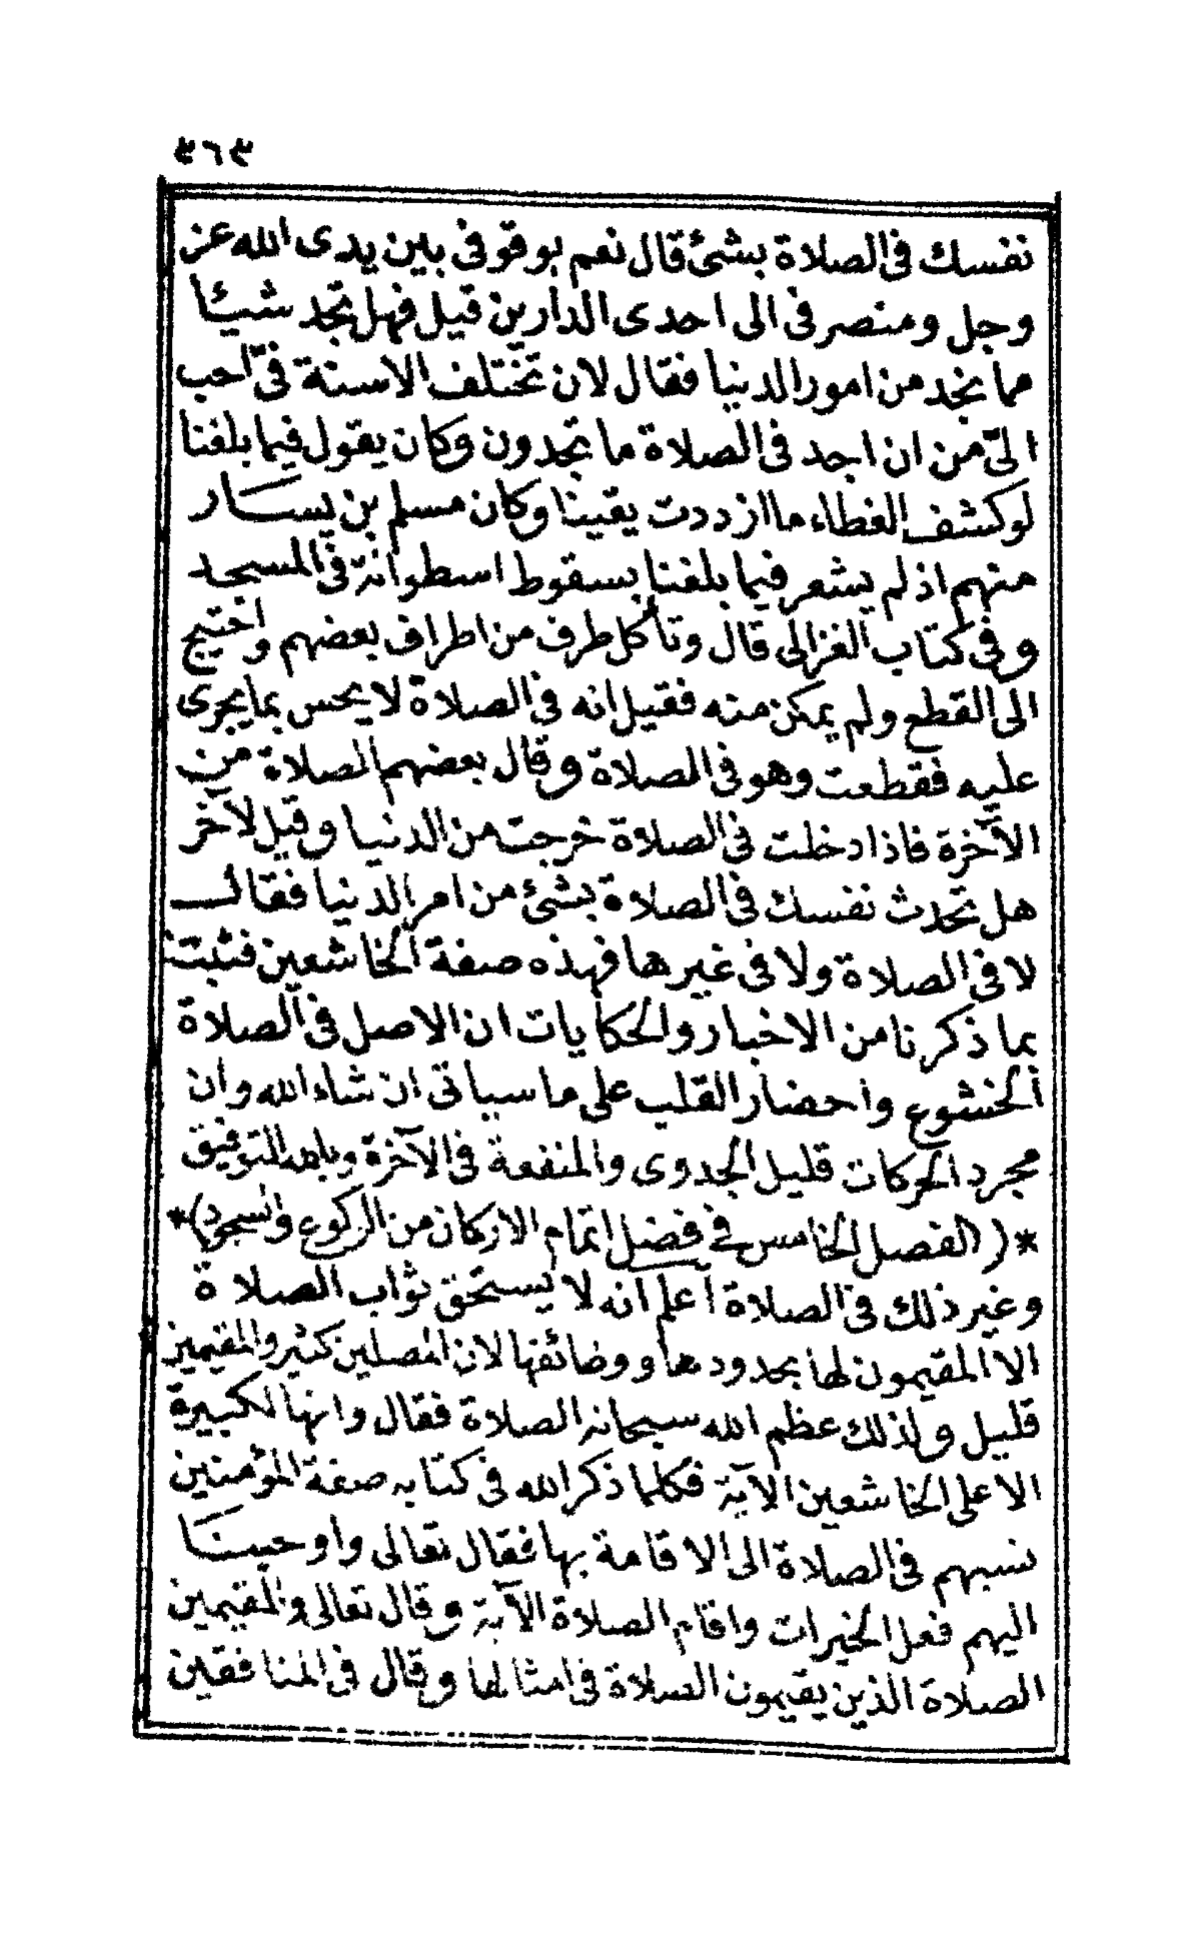 ٣٦٣
نفسك فى الصلاة بشئ قال نعم بوقوفى بين يدى الله عز
وجل ومنصرفى الى احدى الدارين قيل فهل تجد شيئا
مما نجد من امور الدنيا فقال لان تختلف الاسنة فىّ احب
الىّ من ان اجد فى الصلاة ما تجدون وكان يقول فيما بلغنا
لو كشف الغطاء ما ازددت يقينا وكان مسلم بن يسار
منهم اذ لم يشعر فيما بلغنا بسقوط اسطوانة فى المسجد
وفى كتاب الغزالى قال وتأكل طرف من اطراف بعضهم واحتيج
الى القطع ولم يمكن منه فقيل انه فى الصلاة لا يحس بما يجرى
عليه فقطعت وهو فى الصلاة وقال بعضهم الصلاة من
الآخرة فاذا دخلت فى الصلاة خرجت من الدنيا وقيل لآخر
هل تحدث نفسك فى الصلاة بشئ من امر الدنيا فقال
لا فى الصلاة ولا فى غيرها فهذه صفة الخاشعين فثبت
بما ذكرنا من الاخبار والحكايات ان الاصل فى الصلاة
الخشوع واحضار القلب على ما سياتى ان شاء الله وان
مجرد الحركات قليل الجدوى والمنفعة فى الآخرة وبالله التوفيق
*( الفصل الخامس فى فضل اتمام الاركان من الركوع والسجود)*
وغير ذلك فى الصلاة اعلم انه لا يستحق ثواب الصلاة
الا المقيمون لها بحدودها ووضائفها لان المصلين كثير والمقيمين
قليل ولذلك عظم الله سبحانه الصلاة فقال وانها لكبيرة
الا على الخاشعين الآية فكلما ذكر الله فى كتابه صفة المؤمنين
نسبهم فى الصلاة الى الاقامة بها فقال تعالى واوحينا
اليهم فعل الخيرات واقام الصلاة الآية وقال تعالى والمقيمين
الصلاة الذين يقيمون الصلاة فى امثالها وقال فى المنافقين